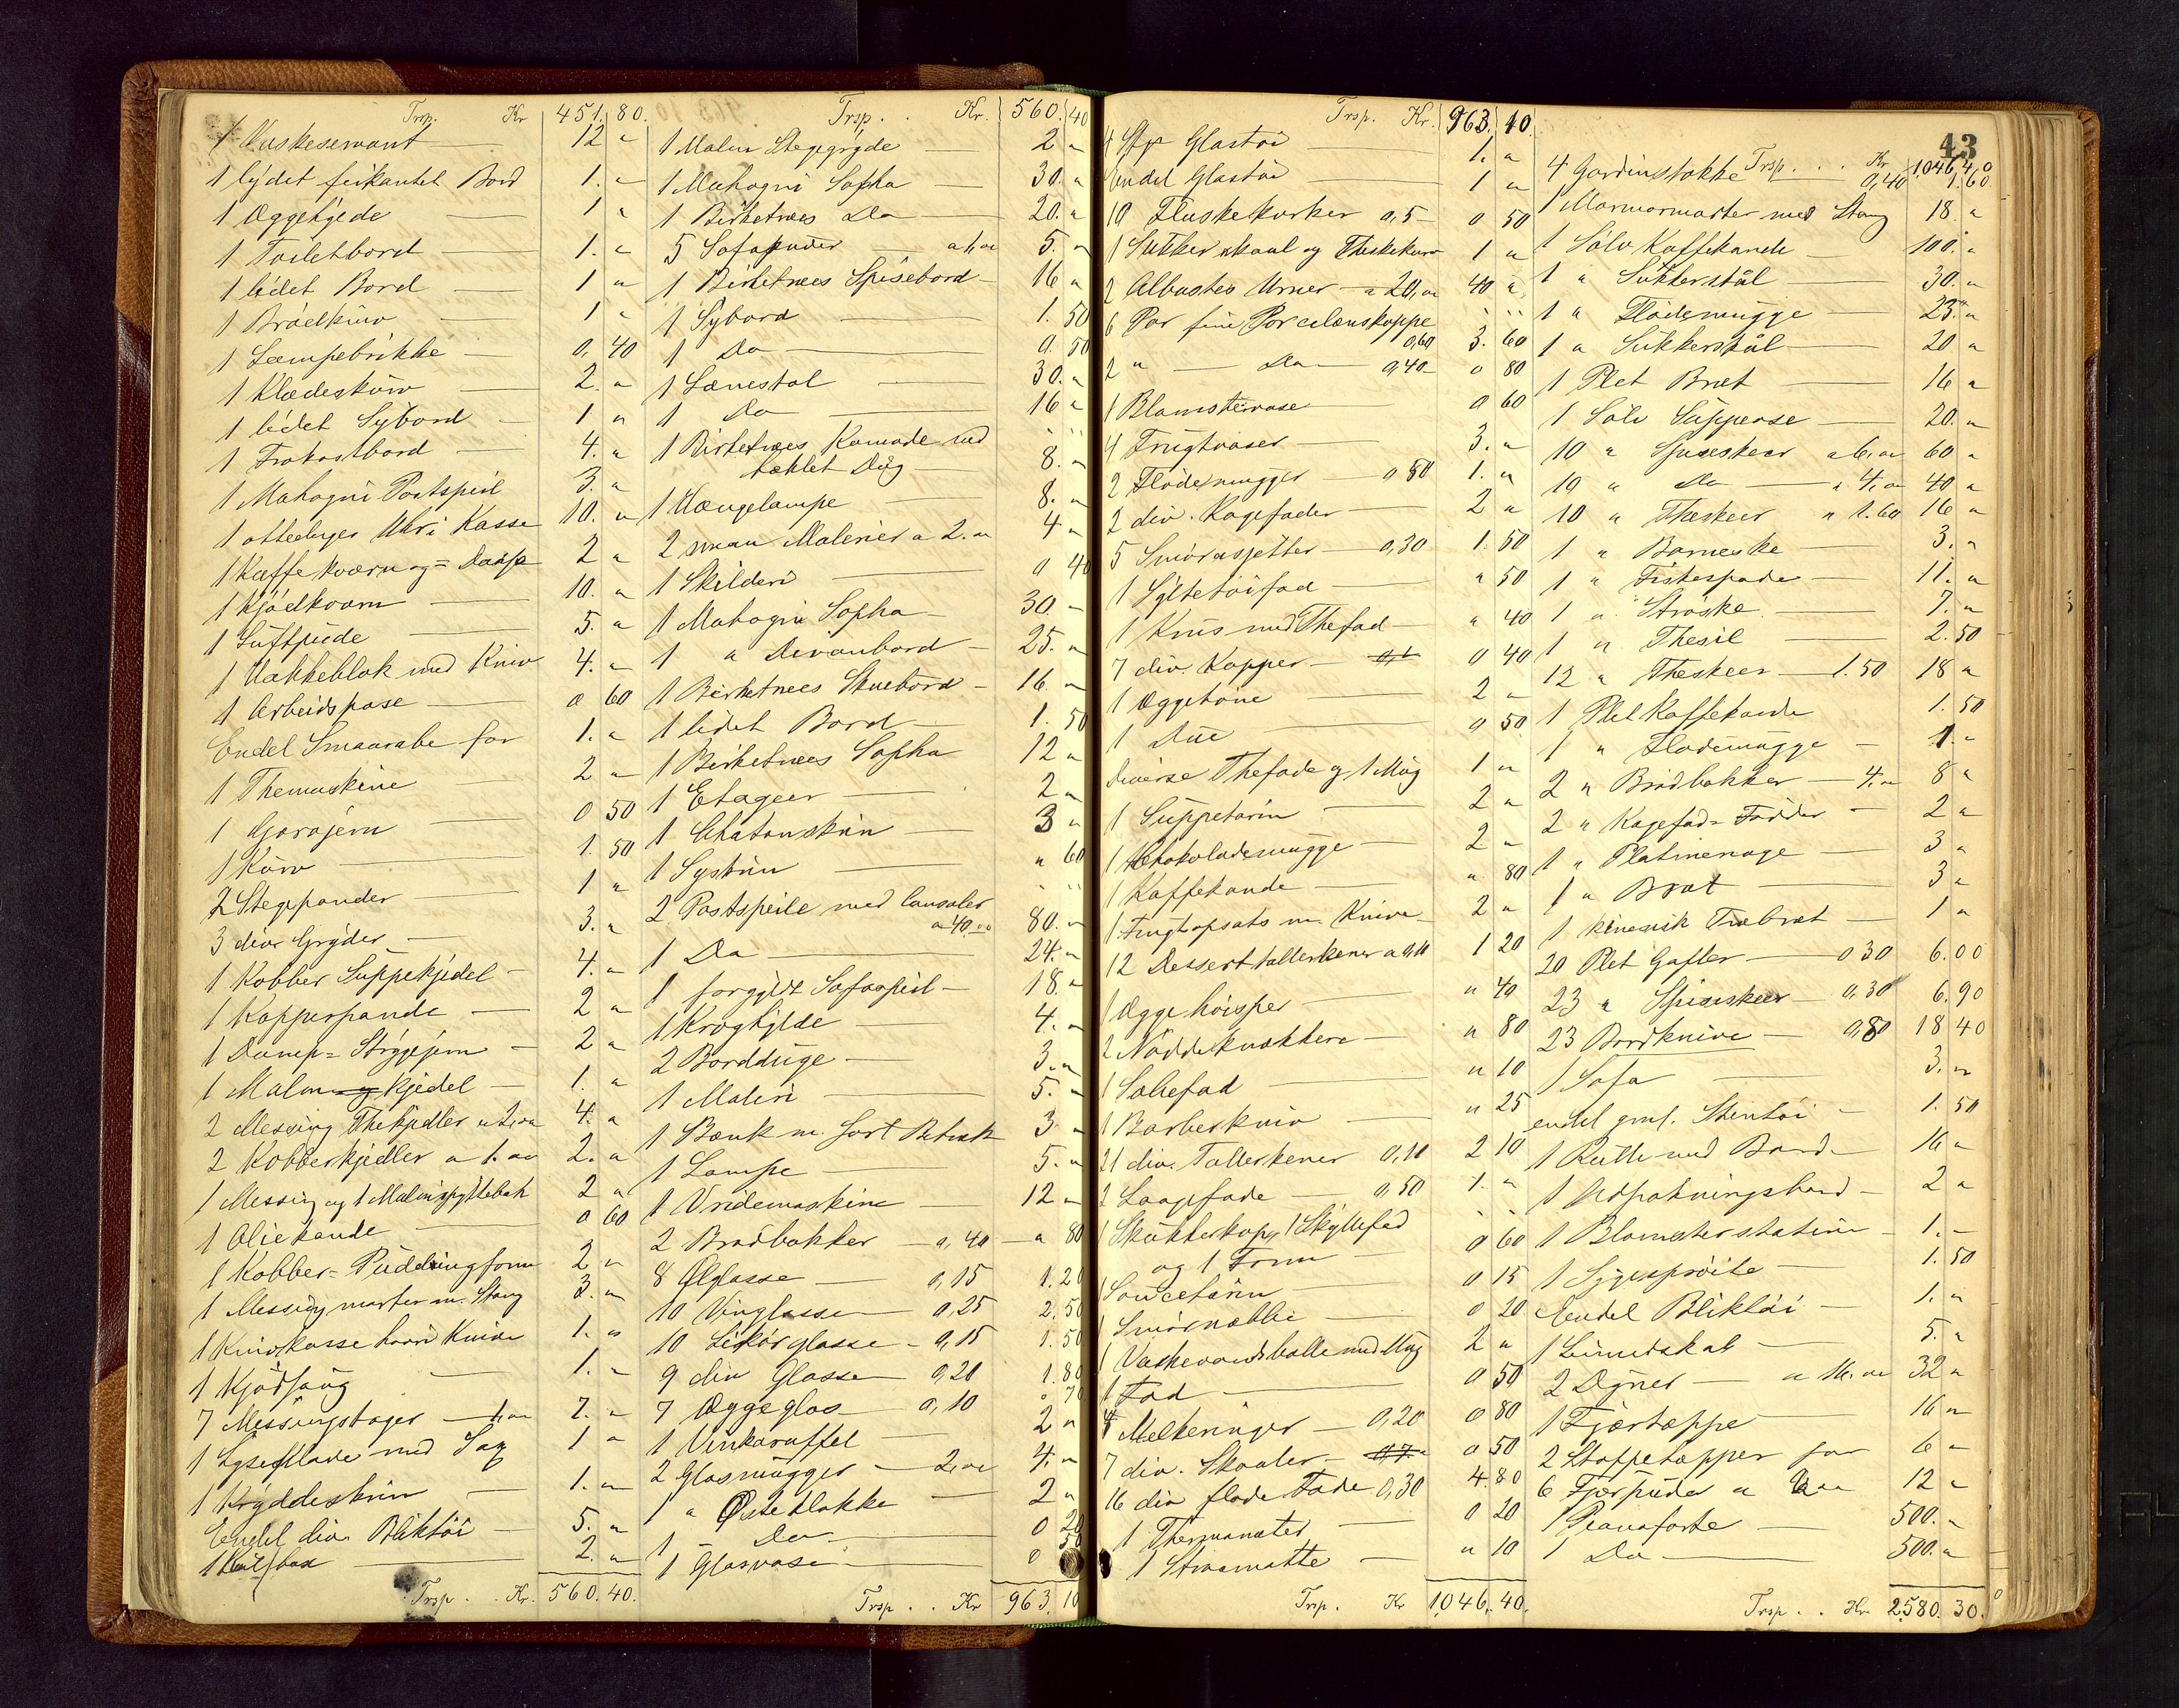 Trsp. Kr 451.80.
1 Vaskeservant 12 "
1 lidet firkantet Bord 1. "
1 Æggehjede 1 "
1 Toiletbord 1. "
1 lidet Bord 1 "
1 Brødkurv 1 "
1 Lampebrikke 0,40
1 Klædeskurv 2. "
1 lidet Sybord 1 "
1 Frokostbord 4. "
1 Mahogni Postspeil 3. "
1 ottedages Uhr i Kasse 10. "
1 Kaffekværn og = Daase 2 "
1 Kjødkværn 10. "
1 Luftpude 5. "
1 Hakkeblok med Kniv 4. "
1 Arbeidspose 0 60
Endel Smaarabe for 1. "
1 Themaskine 2 "
1 Gorojern 0 50
1 Kurv 1. 50
2 Stegepander 1 "
3 diver Gryder 3. "
1 Kobber Suppekjedel 4. "
1 Kopperpande 2 "
1 Damp= Strygejern 2 "
1 Malm kjedel 1. "
2 Messing Thekjedler a 2,00 4. "
2 Kobberkjedler a 1.00 2. "
1 Messing og 1 Malmspyttebak 2 "
1 Oliekande 0 60
1 Kobber= Puddingform 2 "
1 Messing morter m. Stang 3. "
1 Knivkasse hvori Knive 1. "
1 Kjødsaug 1. "
7 Messingstager 1,00 7. "
1 Lyseplade med Sax 1 "
1 Krydderskrin 1. "
Endel div. Bliktøi 5. "
1 Kulbox 2. "
Trsp. . Kr. 560.40.
Trsp. . Kr. 560.40
1 Malm Stegegryde 2 "
1 Mahogni Sopha 30. "
1 Birketræes Do 20. "
5 Sofapuder a 1,00 5. "
1 Birketræes Spisebord 16 "
1 Sybord 1. 50
1 Do 0. 50
1 Lænestol 30. "
1 Do 16 "
1 Birketræes Komode med
hæklet Dug 8. "
1 Hængelampe 8. "
2 smaa Malerier a 2. " 4 "
1 Skilderi 0 40
1 Mahogni Sopha 30. "
1 " Divanbord 25. "
1 Birketræes Skuebord 16 "
1 lidet Bord 1. 50
1 Birketræes Sopha 12 "
1 Etageer 2 "
1 Chatonskrin 3 "
1 Syskrin " 60
2 Postspeile med Consoler
a 40.00 80. "
1 Do 24. "
1 forgyldt Sofaspeil 18. "
1 Kroghylde 4. "
2 Bordduge 3. "
1 Maleri 5. "
1 Bænk m. sort Betræk 3 "
1 Lampe 5. "
1 Vridemaskine 12 "
2 Brødbakker 0,40 " 80
8 Ølglasse 0,15 1.20
10 Vinglasse 0,25 2.50
10 Likörglasse 0,15 1.50
9 div Glasse 0,20 1.80
7 Æggeglas 0,10 " 70
1 Vinkaraffel 2 "
2 Glasmugger 2,00 4. "
1 " Osteklokke 2 "
1 Do 0 20
1 Glasvase 0 50
Trsp. . Kr 963.10
Trsp. Kr. 963.10.
4 Stpr Glastøi 1. "
Endel Glastøi 1 "
10 Fluskekorker 0,5 0 50
1 Sukkerskaal og Theskekurv 1 "
2 Albaster Urner a 20,00 40 "
6 Par fine Porcelænskoppe
0,60 3. 60
2 " Do 0,40 0 80
1 Blomstervase 0 60
4 Frugtvaser 3. "
2 Flødemugger 0 50 1. "
2 div. Kagefader 2 "
5 Smørasjetter 0,30 1. 50
1 Syltetøifad " 50
1 Krus med Thefad " 40
7 div. Kopper 0 40
1 Æggehøne 2 "
1 Due 0 50
diverse Thefade og 1 Mug 1 "
1 Suppeterin 2 "
1 Chokolademugge 2 "
1 Kaffekande " 80
1 Frugtopsats m. Knive 2 "
12 Desserttallerkener a 0,10 1 20
1 Ægge " 40
2 Nøddeknækkere " 80
1 Saltefad " 10
1 Barberkniv " 25
21 div. Tallerkener 0,10 2 10
2 Laagefade 0,50 1. "
1 , 1 Skyllefad
og 1 Form 0 60
1 Souceterin 0 15
1 Smørnebbe 0 20
1 Vaskevandsbolle med Mug 2 "
1 Fad 0 50
4 Melkeringer 0,20 0 80
7 div. Skaaler 0 50
16 div flade Fade 0,30 4.80
1 Thermometer 0 20
1 Straamatte " 10
Trsp. Kr 1046.40.
43
Trsp. . . Kr 1046,40
4 Gardinstokke 0,40 1.60
1 Marmormorter med Stang 18. "
1 Sølv Kaffekande 100. "
1 " Sukkerskål 30. "
1 " Flødemugge 25. "
1 " Sukkerskål 20 "
1 Plet Bræt 16 "
1 Sølv Suppeøse 20. "
10 " Spiseskeer a 6,00 60 "
10 " Do a 4,00 40 "
10 " Theskeer a 1.60 16 "
1 " Barneske 3. "
1 " Fiskespade 11. "
1 " Strøske 7. "
1 " Thesil 2.50
12 " Theskeer 1.50 18 "
1 Plet Kaffekande 1. 50
1 " Flødemugge 1. "
2 " Brødbakker 4. " 8 "
2 " Kagefad= Fødder 2 "
1 " Platmenage 3 "
1 " Bræt 3 "
1 kinesisk Træbræt 1 "
20 Plet Gafler 0 30 6.00
23 " Spiseskeer 0,30 6.90
23 Bordknive 0,80 18 40
1 Sofa 3. "
endel gml. Stentøi 1. 50
1 Rulle med Bord 16 "
1 Udpakningsbord 2 "
1 Blomsterstativ 1. "
1 Sygesprøite 1. 50
Endel Bliktøi 1. "
1 Linnedskab 5. "
2 Dyner a 16.00 32 "
1 Fjærtæppe 16 "
2 Stoppetæpper for 6 "
6 Fjærpuder a 2,00 12 "
1 Pianoforte 500. "
1 Do 500. "
Trsp. . . Kr 2580.30.